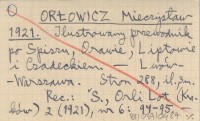 ORŁOWICZ Mieczysław
1921. Ilustrowany przewodnik
po Spiszu, Orawie, Liptowie
i Czadeckiem. — Lwów-
-Warszawa. Stron 288, il., m.
Rec.: S., Orli Lot (Kra-
ków) 2 (1921), nr 6: 94-95.